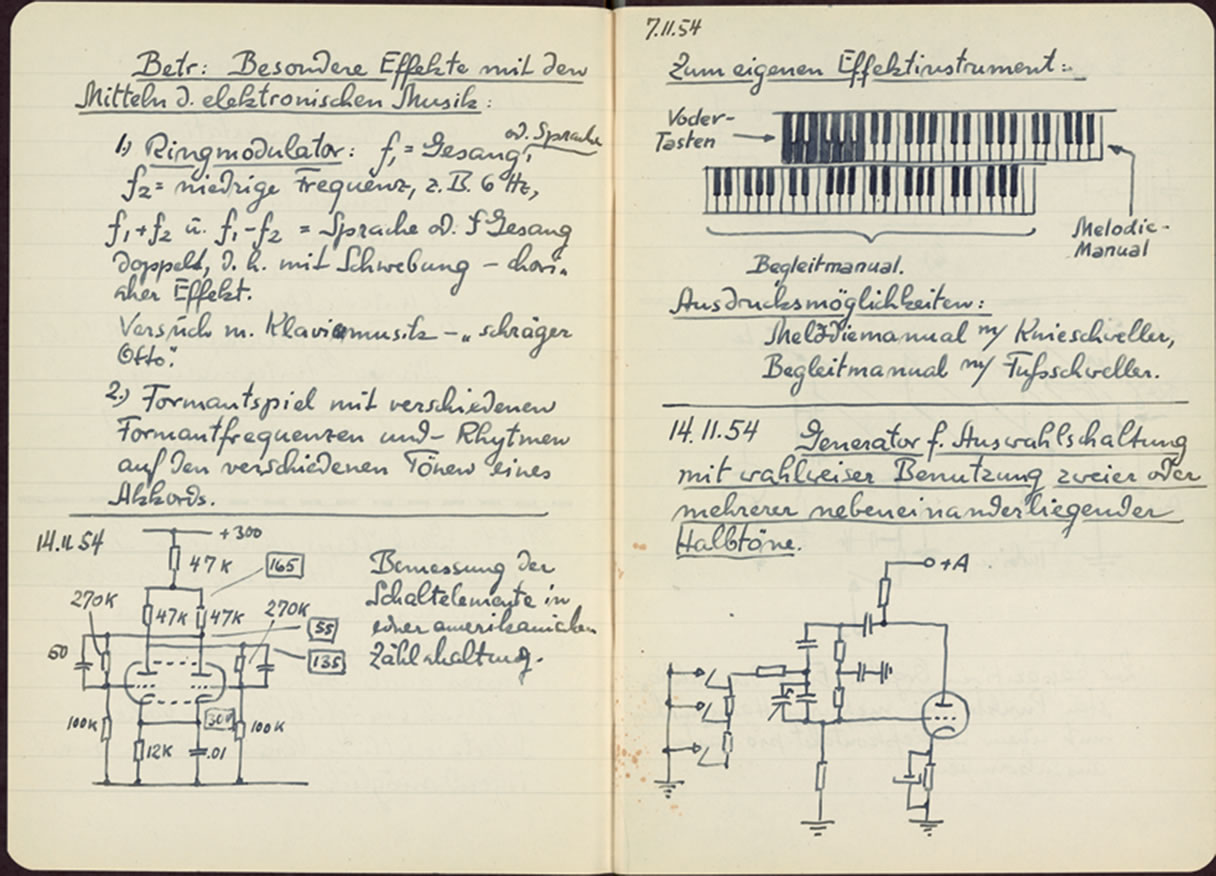 Betr: Besondere Effekte mit den
Mitteln d. elektronischen Musik:
od. Sprache
1.) Ringmodulator: f1 = Gesang,
f2 = niedrige Frequenz, z.B. 6 Hz,
f1+f2 u. f1-f2 = Sprache od. Gesang
doppelt, d.h. mit Schwebung – chori-
scher Effekt.
Versuch m. Klaviermusik – „schräger
Otto".
2.) Formantspiel mit verschiedenen
Formantfrequenzen und - Rhytmen
auf den verschiedenen Tönen eines
Akkords.
14.11.54
+300
47K
165
270K
47K
47K
270K
55
50
135
100K
100K
12K
.01
Bemessung der
Schaltelemente in
einer amerikanischen
Zählschaltung.
7.11.54
Zum eigenen Effektinstrument:
Voder-
Tasten
Melodie-
Manual
Begleitmanual.
Ausdrucksmöglichkeiten:
Melodiemanual m/ Knieschweller,
Begleitmanual m/ Fußschweller.
14.11.54 Generator f. Auswahlschaltung
mit wahlweiser Benutzung zweier oder
mehrerer nebeneinanderliegender
Halbtöne.
+A